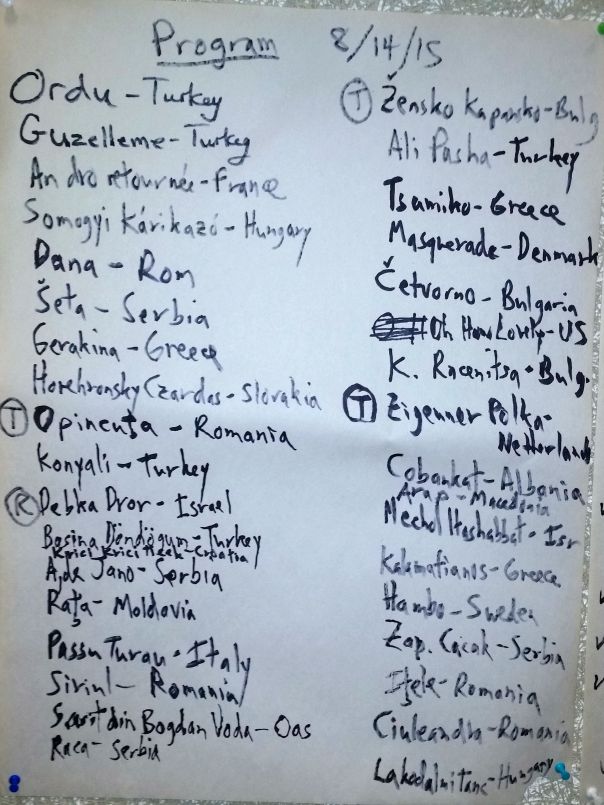 Program 8/14/15
Ordu - Turkey
Guzelleme - Turkey
An dro retournée - France
Somogyi Kárikazó - Hungary
Dana - Rom
Šeta - Serbia
Gerakina - Greece
Horehronsky Czardas - Slovakia
T Opincuța - Romania
Konyali - Turkey
R Debka Dror - Israel
Basina Döndögum - Turkey
Krici Krici Ticek - Croatia
Ajde Jano - Serbia
Rața - Moldovia
Passu Turau - Italy
Siriul - Romania
Sarit din Bogdan Voda - Oas
Raca - Serbia
T Žensko Kapansko - Bulg
Ali Pasha - Turkey
Tsamiko - Greece
Masquerade - Denmark
Četvorno - Bulgaria
Oh How Lovely - US
K. Racenitsa - Bulg.
T Zigeuner Polka -
Netherlands
Cobankat - Albania
Arap - Macedonia
Mechol Hashabbat - Isr
Kalamatianos - Greece
Hambo - Sweden
Zap. Cacak - Serbia
Ițele - Romania
Ciuleandra - Romania
Lakodalmitanc - Hungary